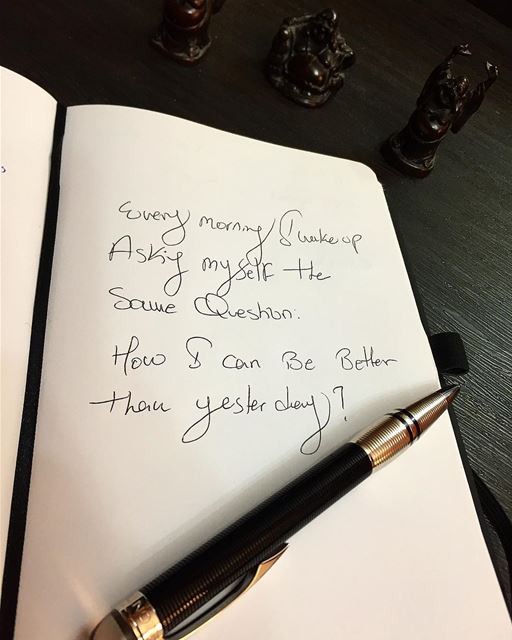 Every morning I wake up
Asking myself the
Same Question:
How I can Be Better
than yesterday?